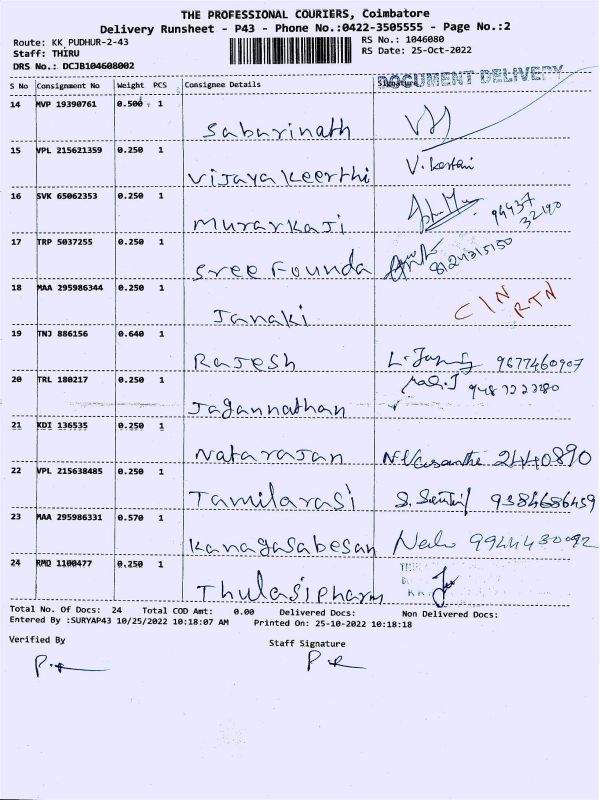 THE PROFESSIONAL COURIERS, Coimbatore
Delivery Runsheet - P43 - Phone No.:0422-3505555 - Page No.:2
Route: KK_PUDHUR-2-43
RS No.: 1046080
Staff: THIRU
RS Date: 25-Oct-2022
DRS No.: DCJB104608002
DOCUMENT DELIVERY
S No Consignment No Weight PCS Consignee Details Signature
14 MVP 19390761 0.500 1
Saburinath
15 VPL 215621359 0.250 1
Vijaya Keerthi V.
16 SVK 65062353 0.250 1
Murarkaji 94437
32190
17 TRP 5037255 0.250 1
Sree Founda 8124315150
18 MAA 295986344 0.250 1
Janaki CIN RTN
19 TNJ 886156 0.640 1
Rajesh 9677460907
20 TRL 180217 0.250 1
Jagannathan
21 KDI 136535 0.250 1
Natarajan N.Vasantha 2440890
22 VPL 215638485 0.250 1
Tamilarasi S. 9384686459
23 MAA 295986331 0.570 1
Kanagasabesan 9944430092
24 RMD 1100477 0.250 1
Thulasipharm
Total No. Of Docs: 24 Total COD Amt: 0.00 Delivered Docs: Non Delivered Docs:
Entered By :SURYAP43 10/25/2022 10:18:07 AM Printed On: 25-10-2022 10:18:18
Verified By Staff Signature